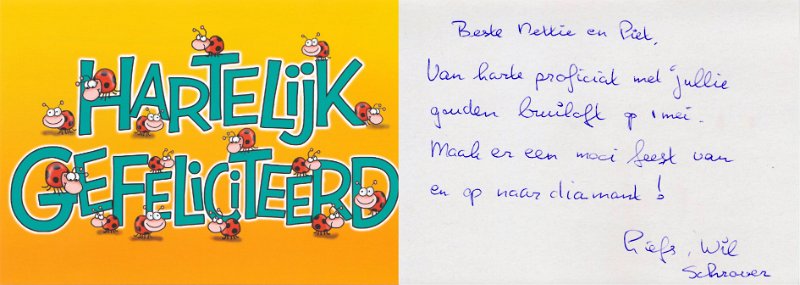 HARTELIJK
GEFELICITEERD
Beste Nettie en Piet,
Van harte proficiat met jullie
gouden bruiloft op 1 mei.
Maak er een mooi feest van
en op naar diamant!
Liefs, Wil
Schrover